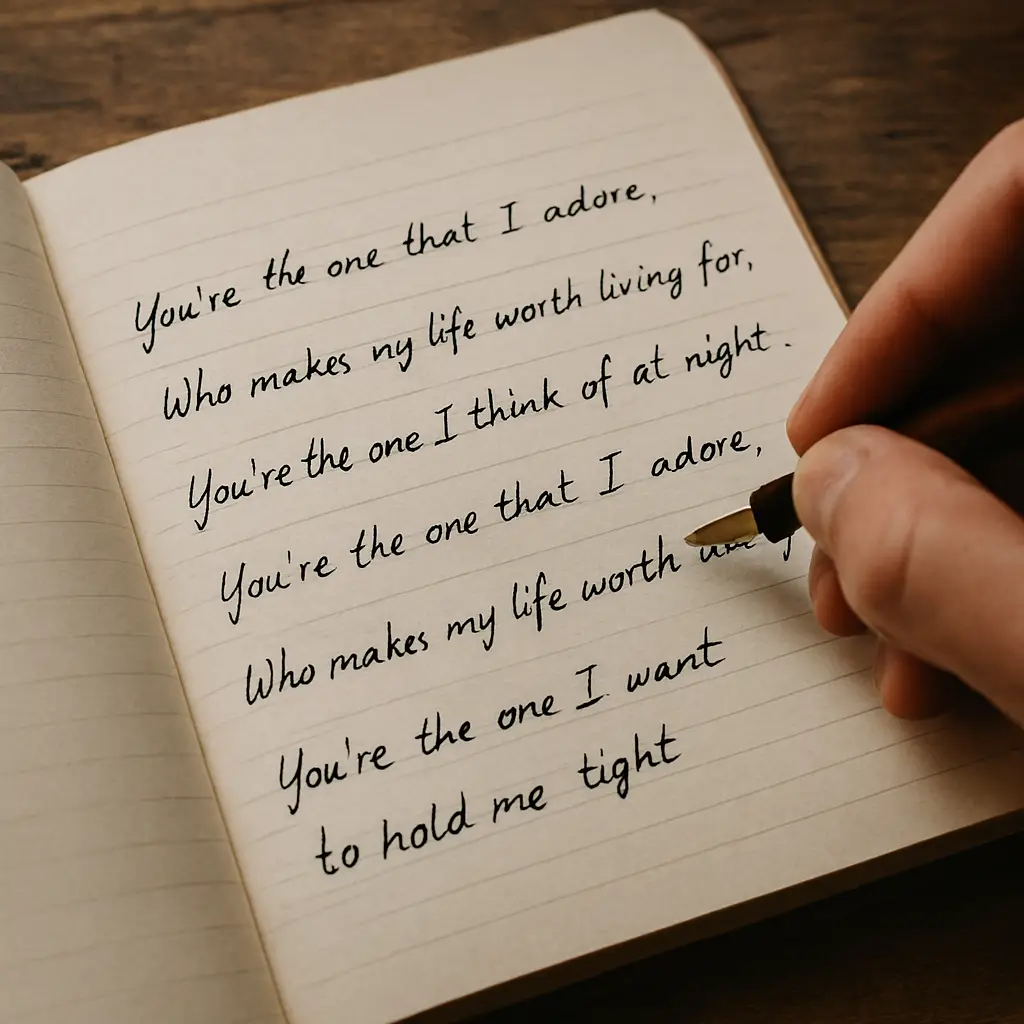 You're the one that I adore,
Who makes ny life worth living for,
You're the one I think of at night.
You're the one that I adore,
Who makes my life worth
You're the one I want
to hold me tight